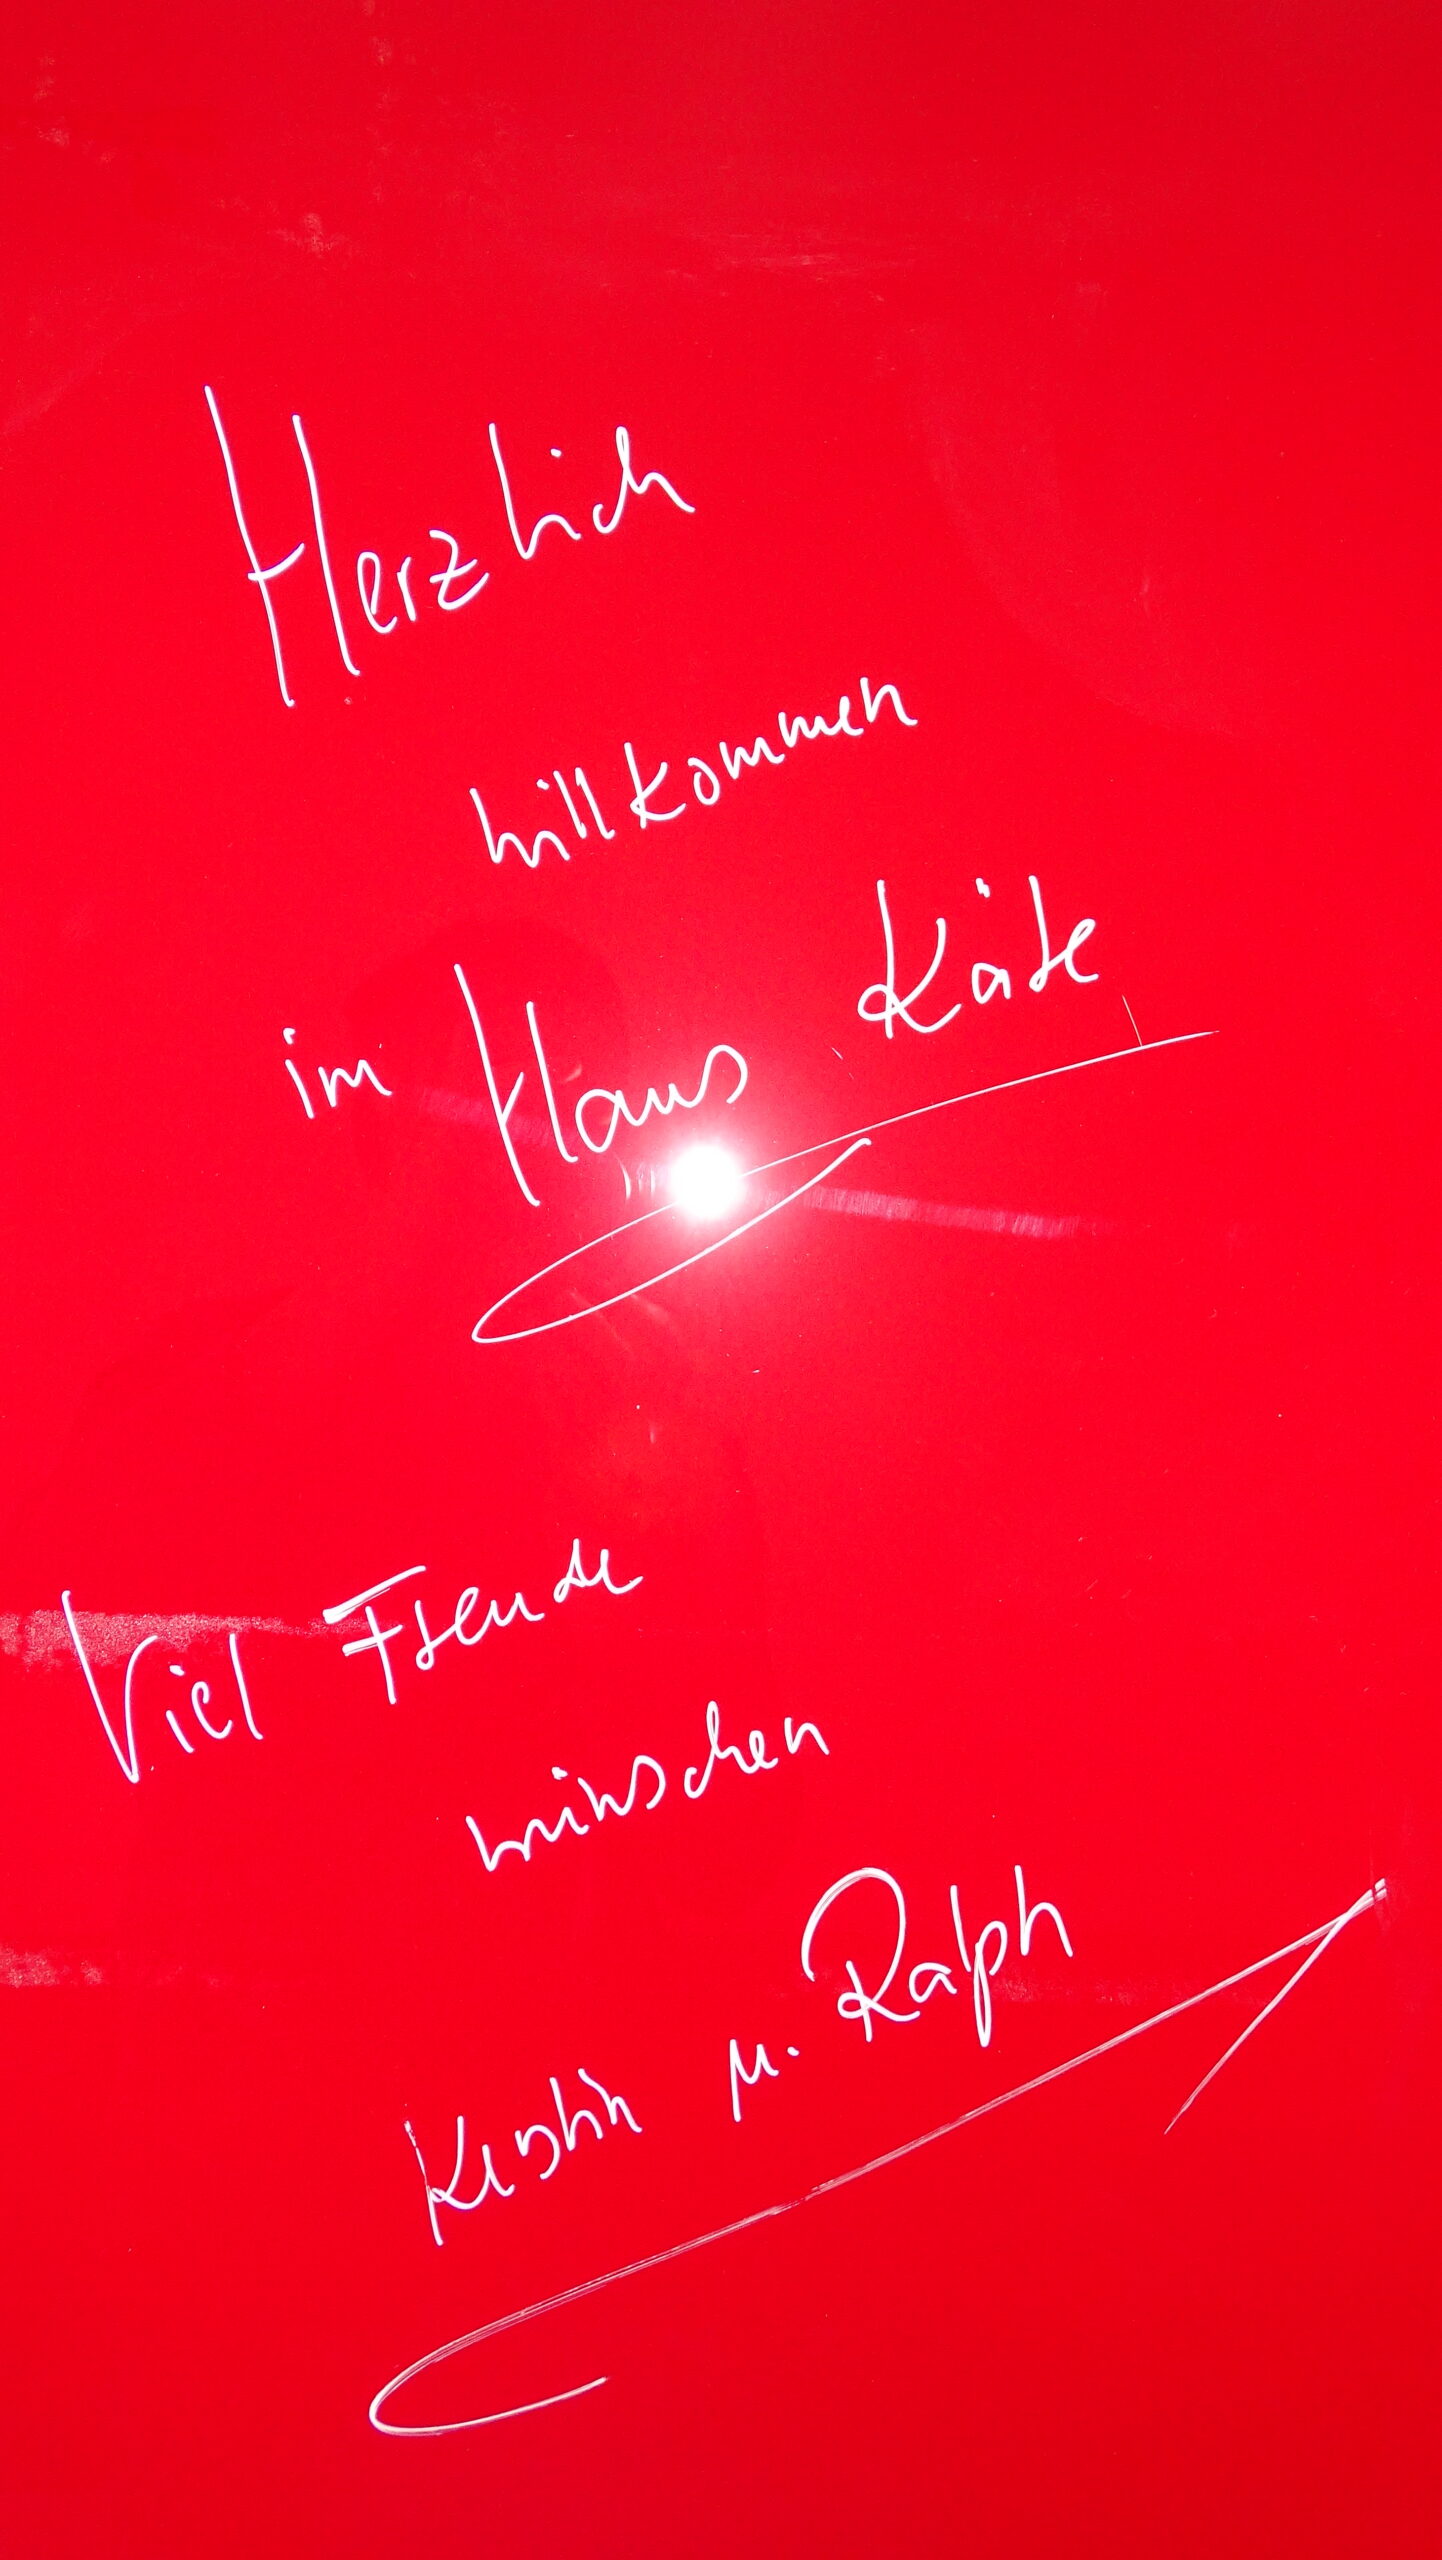 Herzlich
willkommen
im Haus Käte
Viel Freude
wünschen
Kerstin u. Ralph